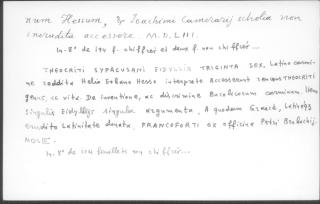 num Hessum, & Joachimi Camerarij scholia non
inerudita accessere M.D.LIII.
in-8° de 194 f. chiffrés et deux f. non chiffrés...
THEOCRITI SYRACUSANI EIDYLLIA TRIGINTA SEX, Latino carmi-
ne reddita Helio Eobano Hesso interprete ACCESSERUNT THEOCRITI
genus, ac vita. De inventione, ac discrimine Bucolicorum carminum. Item
singulis Eidyllijs singula argumenta. A quodam Graece,
erudito Latinitate donata. FRANCOFORTI ex officina Petri Brubachij.
in-8° de 104 feuillets non chiffrés...